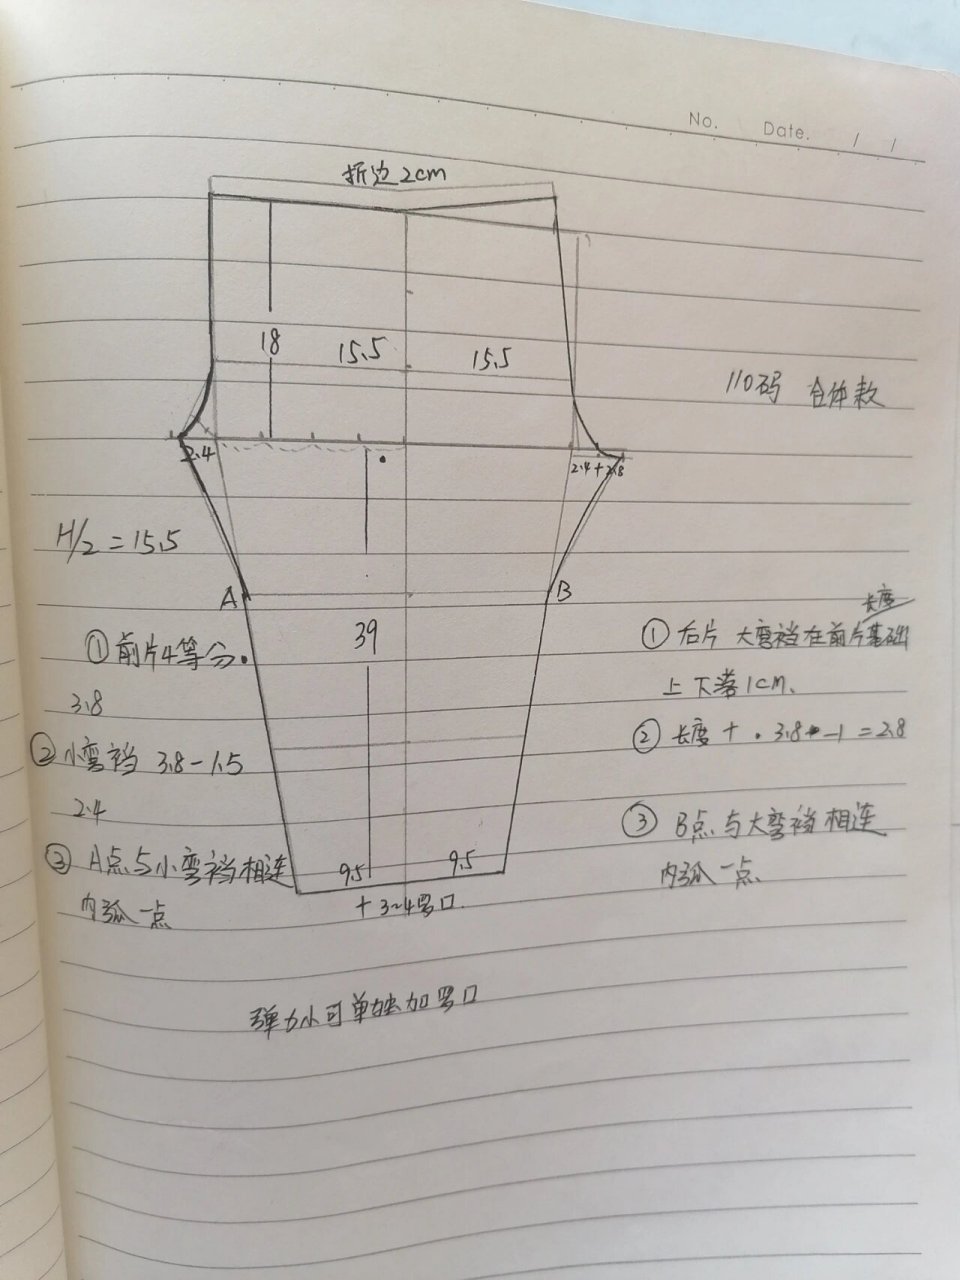 No.
Date.
折边2cm
18
15.5
15.5
110码 合体款
2.4
2.4+2.8
H/2=15.5
A
B
39
①前片4等分.
3.8
②小弯裆 3.8-1.5
2.4
③A点与小弯裆相连
内弧一点
长度
①后片 大弯裆在前片基础
上下落1cm、
②长度+·3.8-1=2.8
③B点与大弯裆相连
内弧一点、
9.5
9.5
+3~4罗口
弹力小可单独加罗口